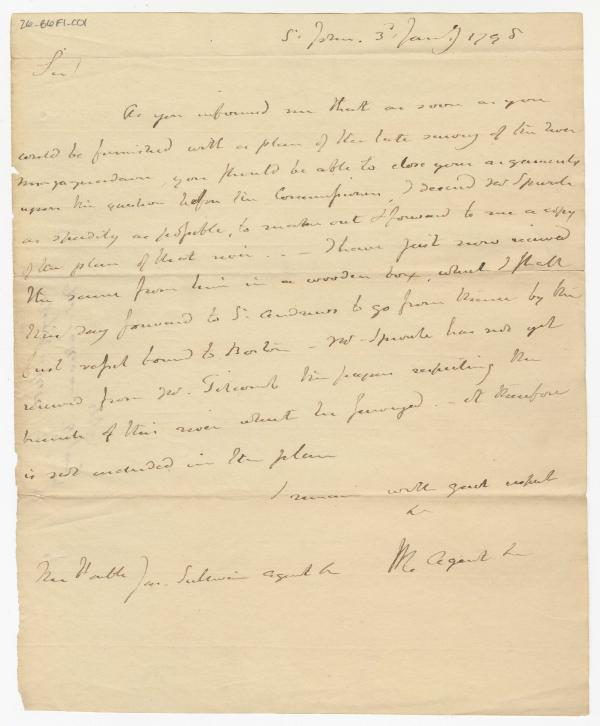 26-B6F1-001
St. John. 3d. Jany. 1798
Sir!
As you informed me that as soon as you
could be furnished with a plan of the late survey of the river
Magaguadavic, you should be able to close your arguments
upon the question before the Commissioners, I desired Mr Sproule
as speedily as possible, to make out & forward to me a copy
of the plan of that river. . — I have just now received
the same from him in a wooden box, which I shall
this day forward to St. Andrews to go from thence by the
first vessel bound to Boston — Mr. Sproule has not yet
received from Mr. Titcomb the papers respecting the
branch of this river which he surveyed. — It therefore
is not included in the plan
I remain with great respect
&c
The Honble Jas. Sullivan Agent &c The Agent &c